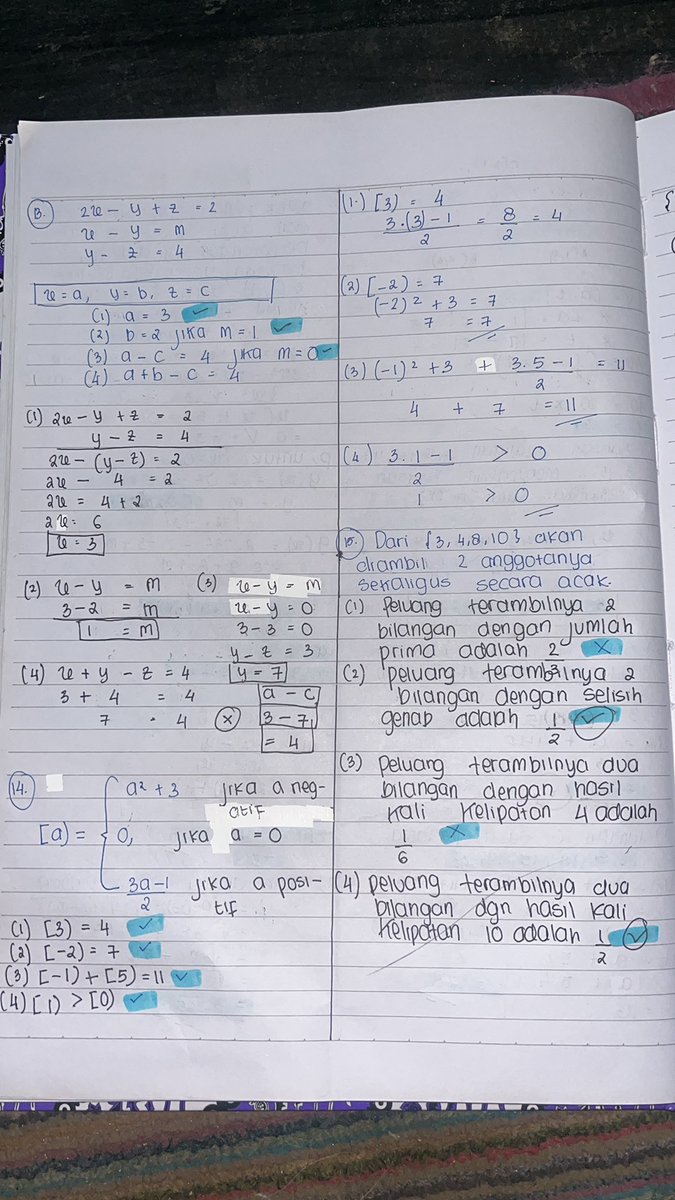 13. 2x - y + z = 2
x - y = m
y - z = 4
x = a, y = b, z = c
(1) a = 3 ✓
(2) b = 2 jika m = 1 ✓
(3) a - c = 4 jika m = 0 ✓
(4) a + b - c = 4
(1) 2x - y + z = 2
y - z = 4
2x - (y - z) = 2
2x - 4 = 2
2x = 4 + 2
2x = 6
x = 3
(2) x - y = m
3 - 2 = m
1 = m
(3) x - y = m
x - y = 0
3 - 3 = 0
y - z = 3
y = 7
a - c
3 - 7
= 4
(4) x + y - z = 4
3 + 4 = 4
7 = 4 ✗
14. [a) = { a² + 3 jika a neg-
atif
0, jika a = 0
3a - 1 / 2 jika a posi-
tif
(1) [3) = 4 ✓
(2) [-2) = 7 ✓
(3) [-1) + [5) = 11 ✓
(4) [1) > [0) ✓
(1.) [3) = 4
3.(3) - 1 / 2 = 8 / 2 = 4
(2) [-2) = 7
(-2)² + 3 = 7
7 = 7
(3) (-1)² + 3 + 3.5 - 1 / 2 = 11
4 + 7 = 11
(4) 3.1 - 1 / 2 > 0
1 > 0
15. Dari {3, 4, 8, 10} akan
diambil 2 anggotanya
sekaligus secara acak.
(1) Peluang terambilnya 2
bilangan dengan jumlah
prima adalah 2/3 ✗
(2) peluang terambilnya 2
bilangan dengan selisih
genap adalah 1/2 ✓
(3) Peluang terambilnya dua
bilangan dengan hasil
kali kelipatan 4 adalah
1/6 ✗
(4) peluang terambilnya dua
bilangan dgn hasil kali
kelipatan 10 adalah 1/2 ✓